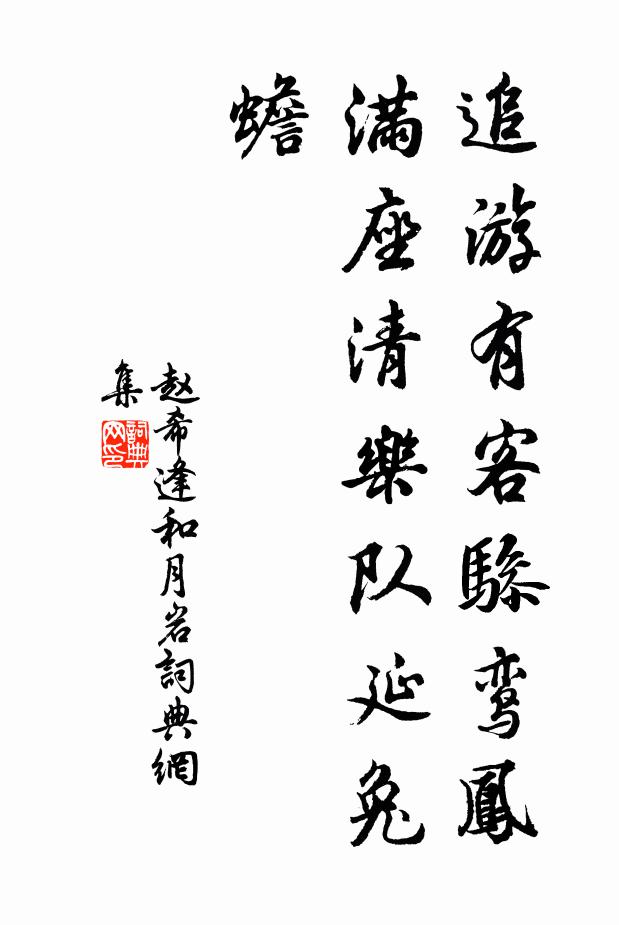 追游有客骖鸾鳳
满座清樂队延兔
蟾
赵希逢和月岩詞典網
集
詞典
网印